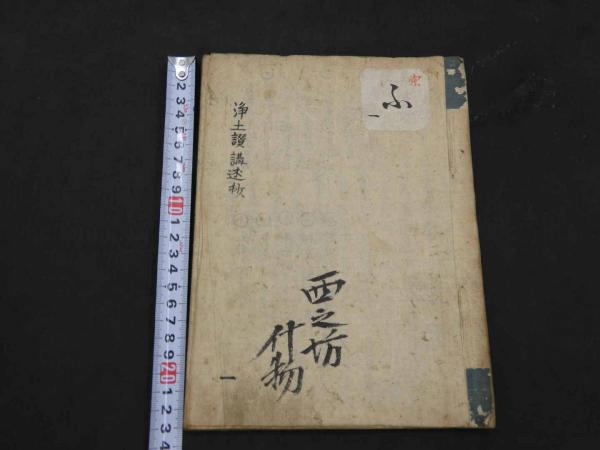 宗
ふ
一
浄土讃講述抄
西之坊
什物
一
2 3 4 5 6 7 8 9 10 1 2 3 4 5 6 7 8 9 20 1 2 3 4